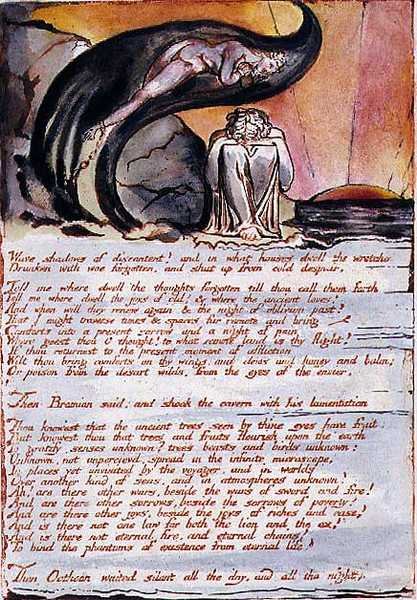 Wave shadows of discontent? and in what houses dwell the wretched
Drunken with woe forgotten, and shut up from cold despair,
Tell me where dwell the thoughts forgotten till thou call them forth
Tell me where dwell the joys of old! & where the ancient loves?
And when will they renew again & the night of oblivion past?
That I might traverse times & spaces far remote and bring
Comforts into a present sorrow and a night of pain
Where goest thou O thought! to what remote land is thy flight?
If thou returnest to the present moment of affliction
Wilt thou bring comforts on thy wings and dews and honey and balm;
Or poison from the desart wilds, from the eyes of the envier.
Then Bromion said: and shook the cavern with his lamentation
Thou knowest that the ancient trees seen by thine eyes have fruit;
But knowest thou that trees and fruits flourish upon the earth
To gratify senses unknown? trees beasts and birds unknown:
Unknown, not unpercievd, spread in the infinite microscope,
In places yet unvisited by the voyager, and in worlds
Over another kind of seas, and in atmospheres unknown?
Ah! are there other wars, beside the wars of sword and fire!
And are there other sorrows, beside the sorrows of poverty?
And are there other joys, beside the joys of riches and ease?
And is there not one law for both the lion and the ox?
And is there not eternal fire, and eternal chains?
To bind the phantoms of existence from eternal life?
Then Oothoon waited silent all the day, and all the night,